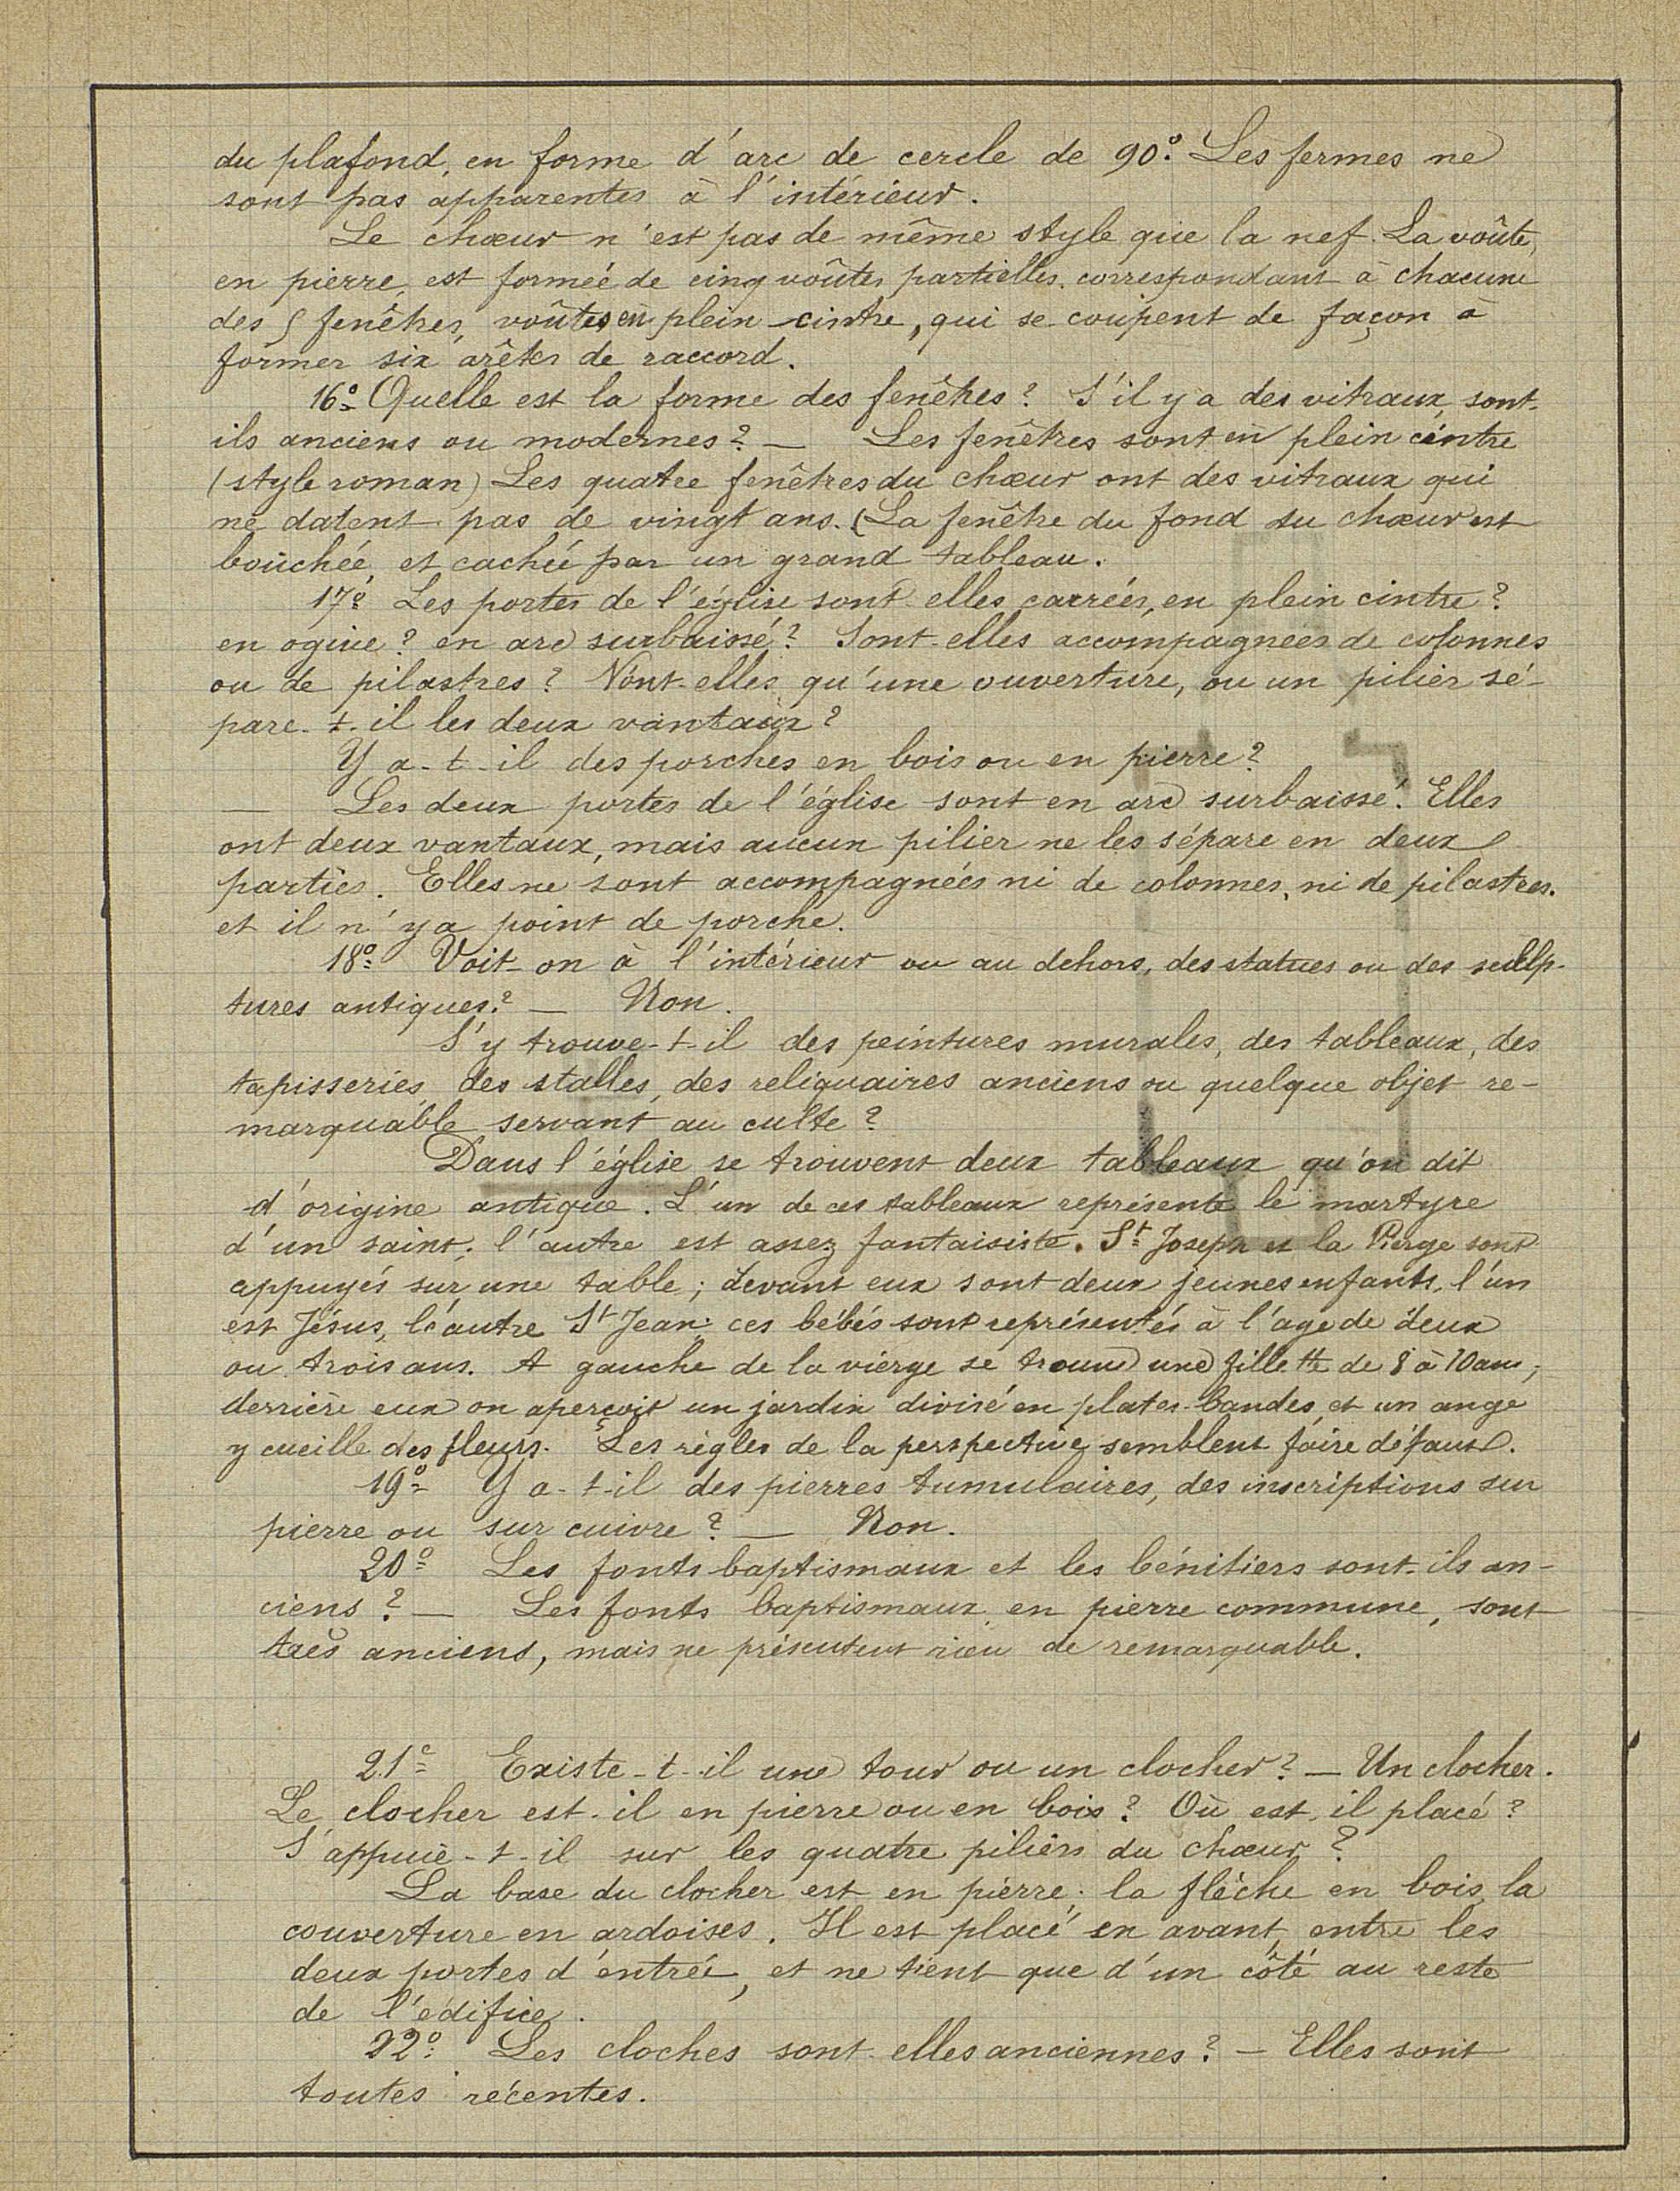 du plafond, en forme d'arc de cercle de 90°. Les fermes ne
sont pas apparentes à l'intérieur.
Le chœur n'est pas de même style que la nef. La voûte,
en pierre, est formée de cinq voûtes partielles correspondant à chacune
des 5 fenêtres, voûtes en plein-cintre, qui se coupent de façon à
former six arêtes de raccord.
16° Quelle est la forme des fenêtres ? S'il y a des vitraux, sont-
ils anciens ou modernes ? — Les fenêtres sont en plein cintre
(style roman) Les quatre fenêtres du chœur ont des vitraux qui
ne datent pas de vingt ans. (La fenêtre du fond du chœur est
bouchée, et cachée par un grand tableau.
17° Les portes de l'église sont-elles carrées, en plein cintre ?
en ogive ? en arc surbaissé ? Sont-elles accompagnées de colonnes
ou de pilastres ? N'ont-elles qu'une ouverture, ou un pilier sé-
pare-t-il les deux vantaux ?
Y a-t-il des porches en bois ou en pierre ?
— Les deux portes de l'église sont en arc surbaissé. Elles
ont deux vantaux, mais aucun pilier ne les sépare en deux
parties. Elles ne sont accompagnées ni de colonnes, ni de pilastres.
et il n'y a point de porche.
18° Voit-on à l'intérieur ou au dehors, des statues ou des sculp-
tures antiques ? — Non.
S'y trouve-t-il des peintures murales, des tableaux, des
tapisseries, des stalles, des reliquaires anciens ou quelque objet re-
marquable servant au culte ?
Dans l'église se trouvent deux tableaux qu'on dit
d'origine antique. L'un de ces tableaux représente le martyre
d'un saint ; l'autre est assez fantaisiste. St Joseph et la Vierge sont
appuyés sur une table ; devant eux sont deux jeunes enfants, l'un
est Jésus, l'autre St Jean ; ces bébés sont représentés à l'age de deux
ou trois ans. A gauche de la vierge se trouve une fillette de 8 à 10 ans ;
derrière eux on aperçoit un jardin divisé en plates-bandes, et un ange
y cueille des fleurs. Les règles de la perspective semblent faire défaut.
19° Y a-t-il des pierres tumulaires, des inscriptions sur
pierre ou sur cuivre ? — Non.
20° Les fonts baptismaux et les bénitiers sont-ils an-
ciens ? — Les fonts baptismaux en pierre commune, sont
très anciens, mais ne présentent rien de remarquable.
21° Existe-t-il une tour ou un clocher ? — Un clocher.
Le clocher est-il en pierre ou en bois ? Où est-il placé ?
S'appuie-t-il sur les quatre piliers du chœur ?
La base du clocher est en pierre ; la flèche en bois, la
couverture en ardoises. Il est placé en avant, entre les
deux portes d'entrée, et ne tient que d'un côté au reste
de l'édifice.
22° Les cloches sont-elles anciennes ? — Elles sont
toutes récentes.